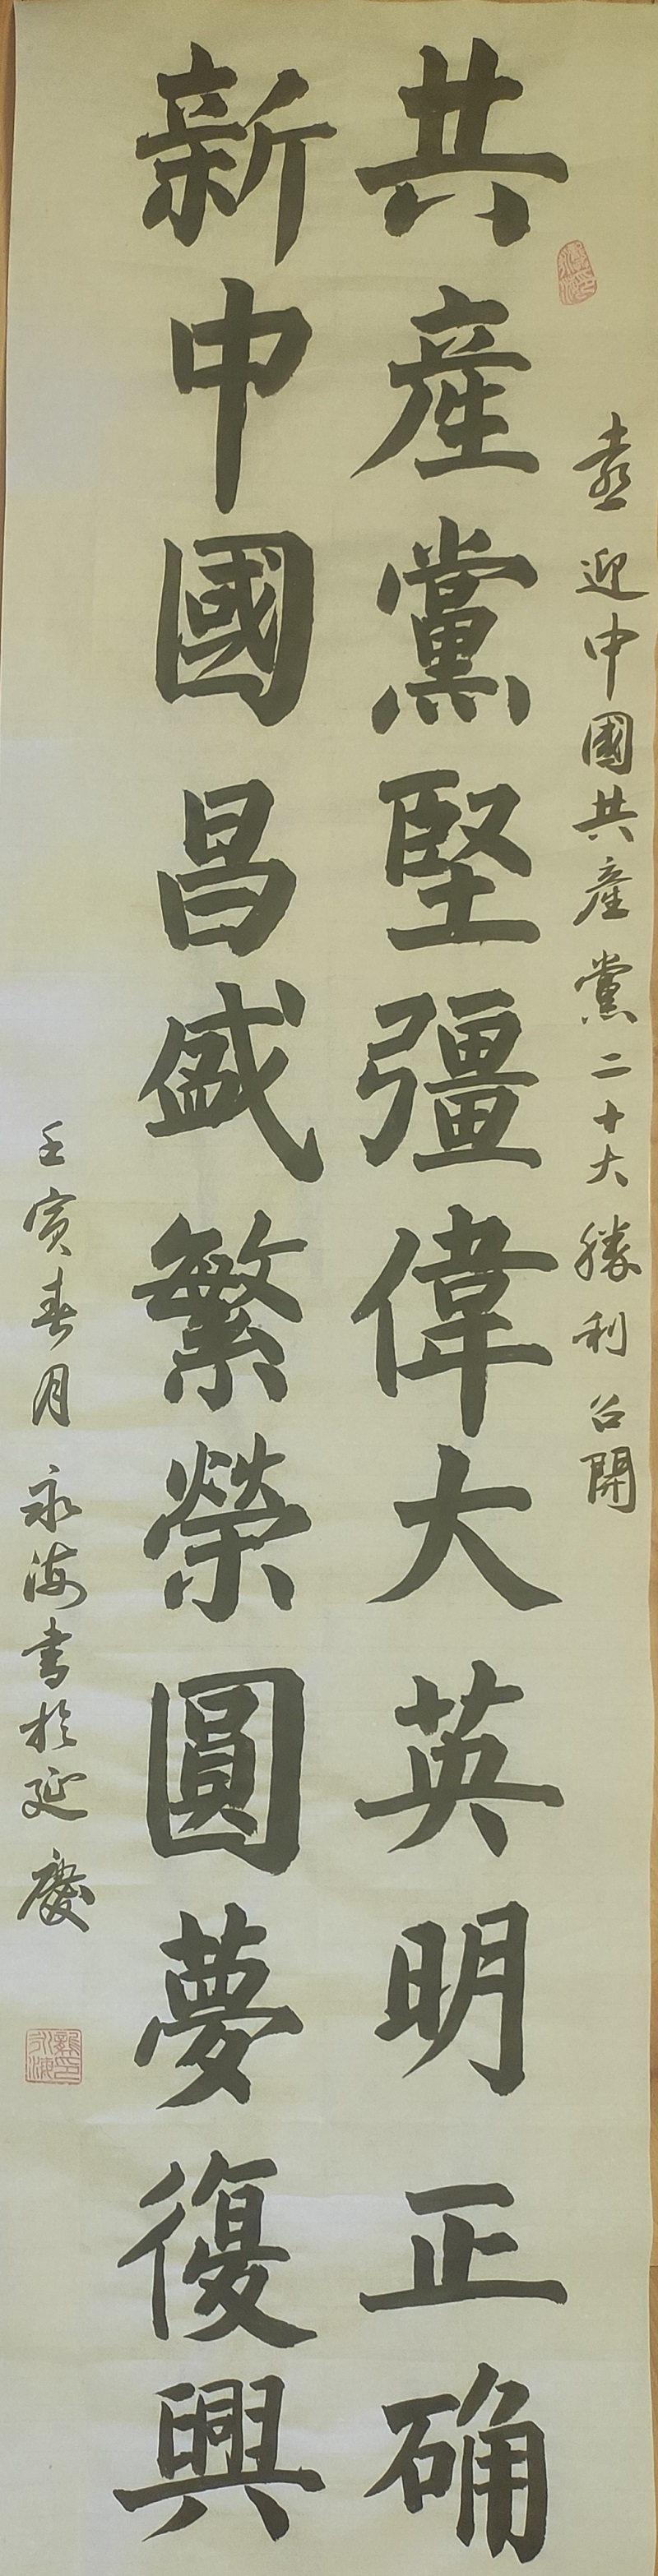 喜迎中國共産黨二十大勝利召開
共産黨堅彊偉大英明正确
新中國昌盛繁榮圓夢復興
壬寅春月永海書於延慶